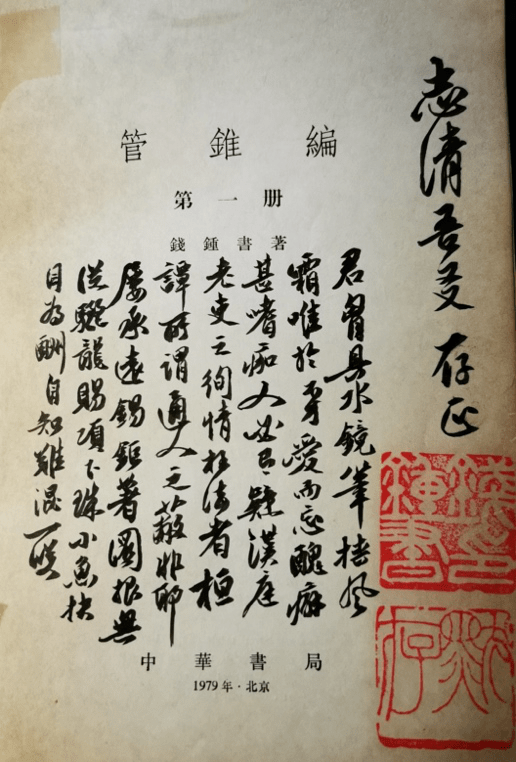 志清吾友 存正
管錐編
第一册
錢鍾書著
君胷具水鏡筆挾風
霜唯於弟愛而忘醜癖
甚嗜痂人必已疑漢庭
老吏之徇情枉法者桓
譚所謂通人之蔽非耶
屢承遠錫鉅著圖報無
從驪龍賜項下珠小魚抉
目為酬自知難混一
中華書局
1979年·北京
錢鍾書印
默存